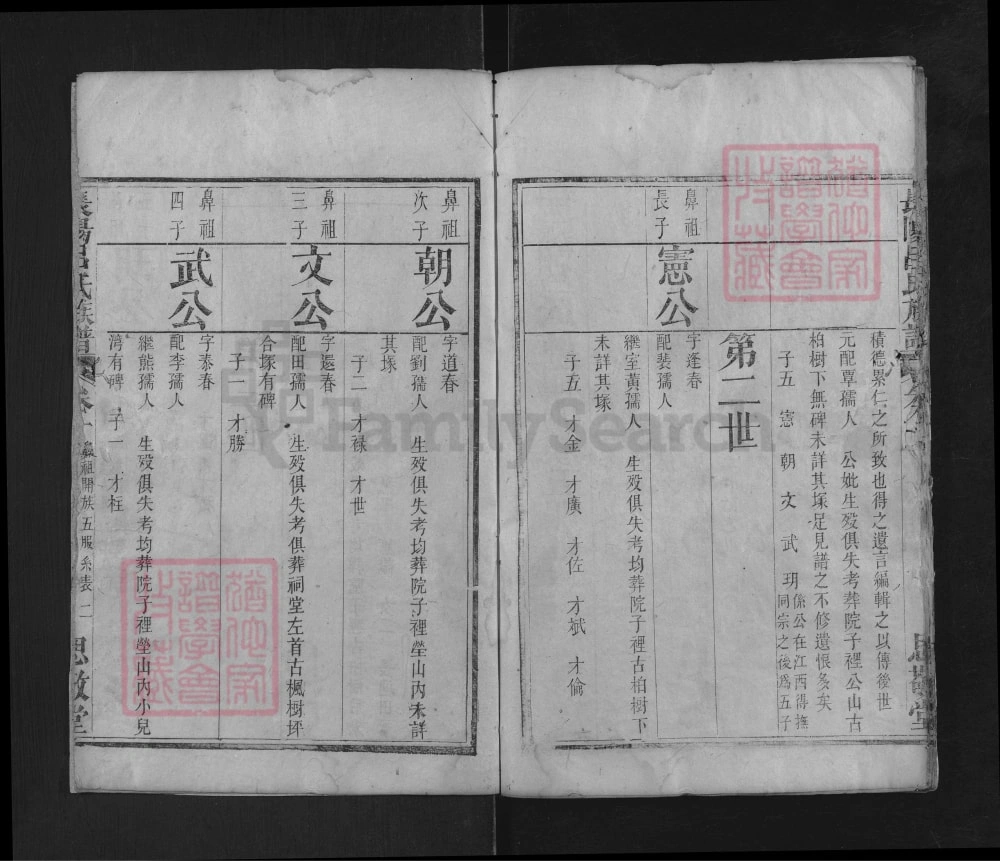 積德累仁之所致也得之遺言編輯之以傳後世
元配覃孺人 公妣生歿俱失考葬院子裡公山古
柏樹下無碑未詳其塚足見譜之不修遺恨多矣
子五 憲 朝 文 武 玥 係公在江西得撫
同宗之後爲五子
第二世
鼻祖
長子
憲公
字逢春
配裴孺人
繼室黃孺人 生歿俱失考均葬院子裡古柏樹下
未詳其塚
子五 才金 才廣 才佐 才斌 才倫
鼻祖
次子
朝公
字道春
配劉孺人 生歿俱失考均葬院子裡塋山內未詳
其塚
子二 才禄 才世
鼻祖
三子
文公
字遐春
配田孺人 生歿俱失考俱葬祠堂左首古楓樹坪
合塚有碑
子一 才勝
鼻祖
四子
武公
字泰春
配李孺人
繼熊孺人 生歿俱失考均葬院子裡塋山內小兒
湾有碑 子一 才枉
長陽呂氏族譜 卷一 鼻祖開族五服系表 二 思敬堂
FamilySearch